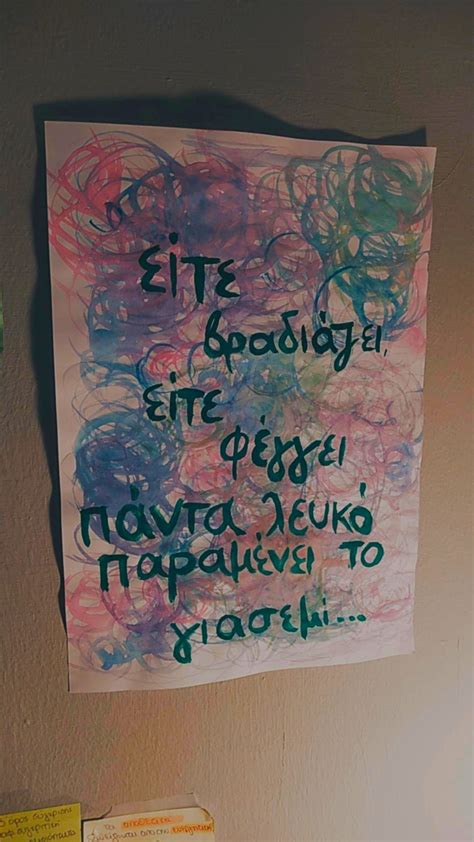 είτε
βραδιάζει,
είτε
φέγγει
πάντα λευκό
παραμένει το
γιασεμί...